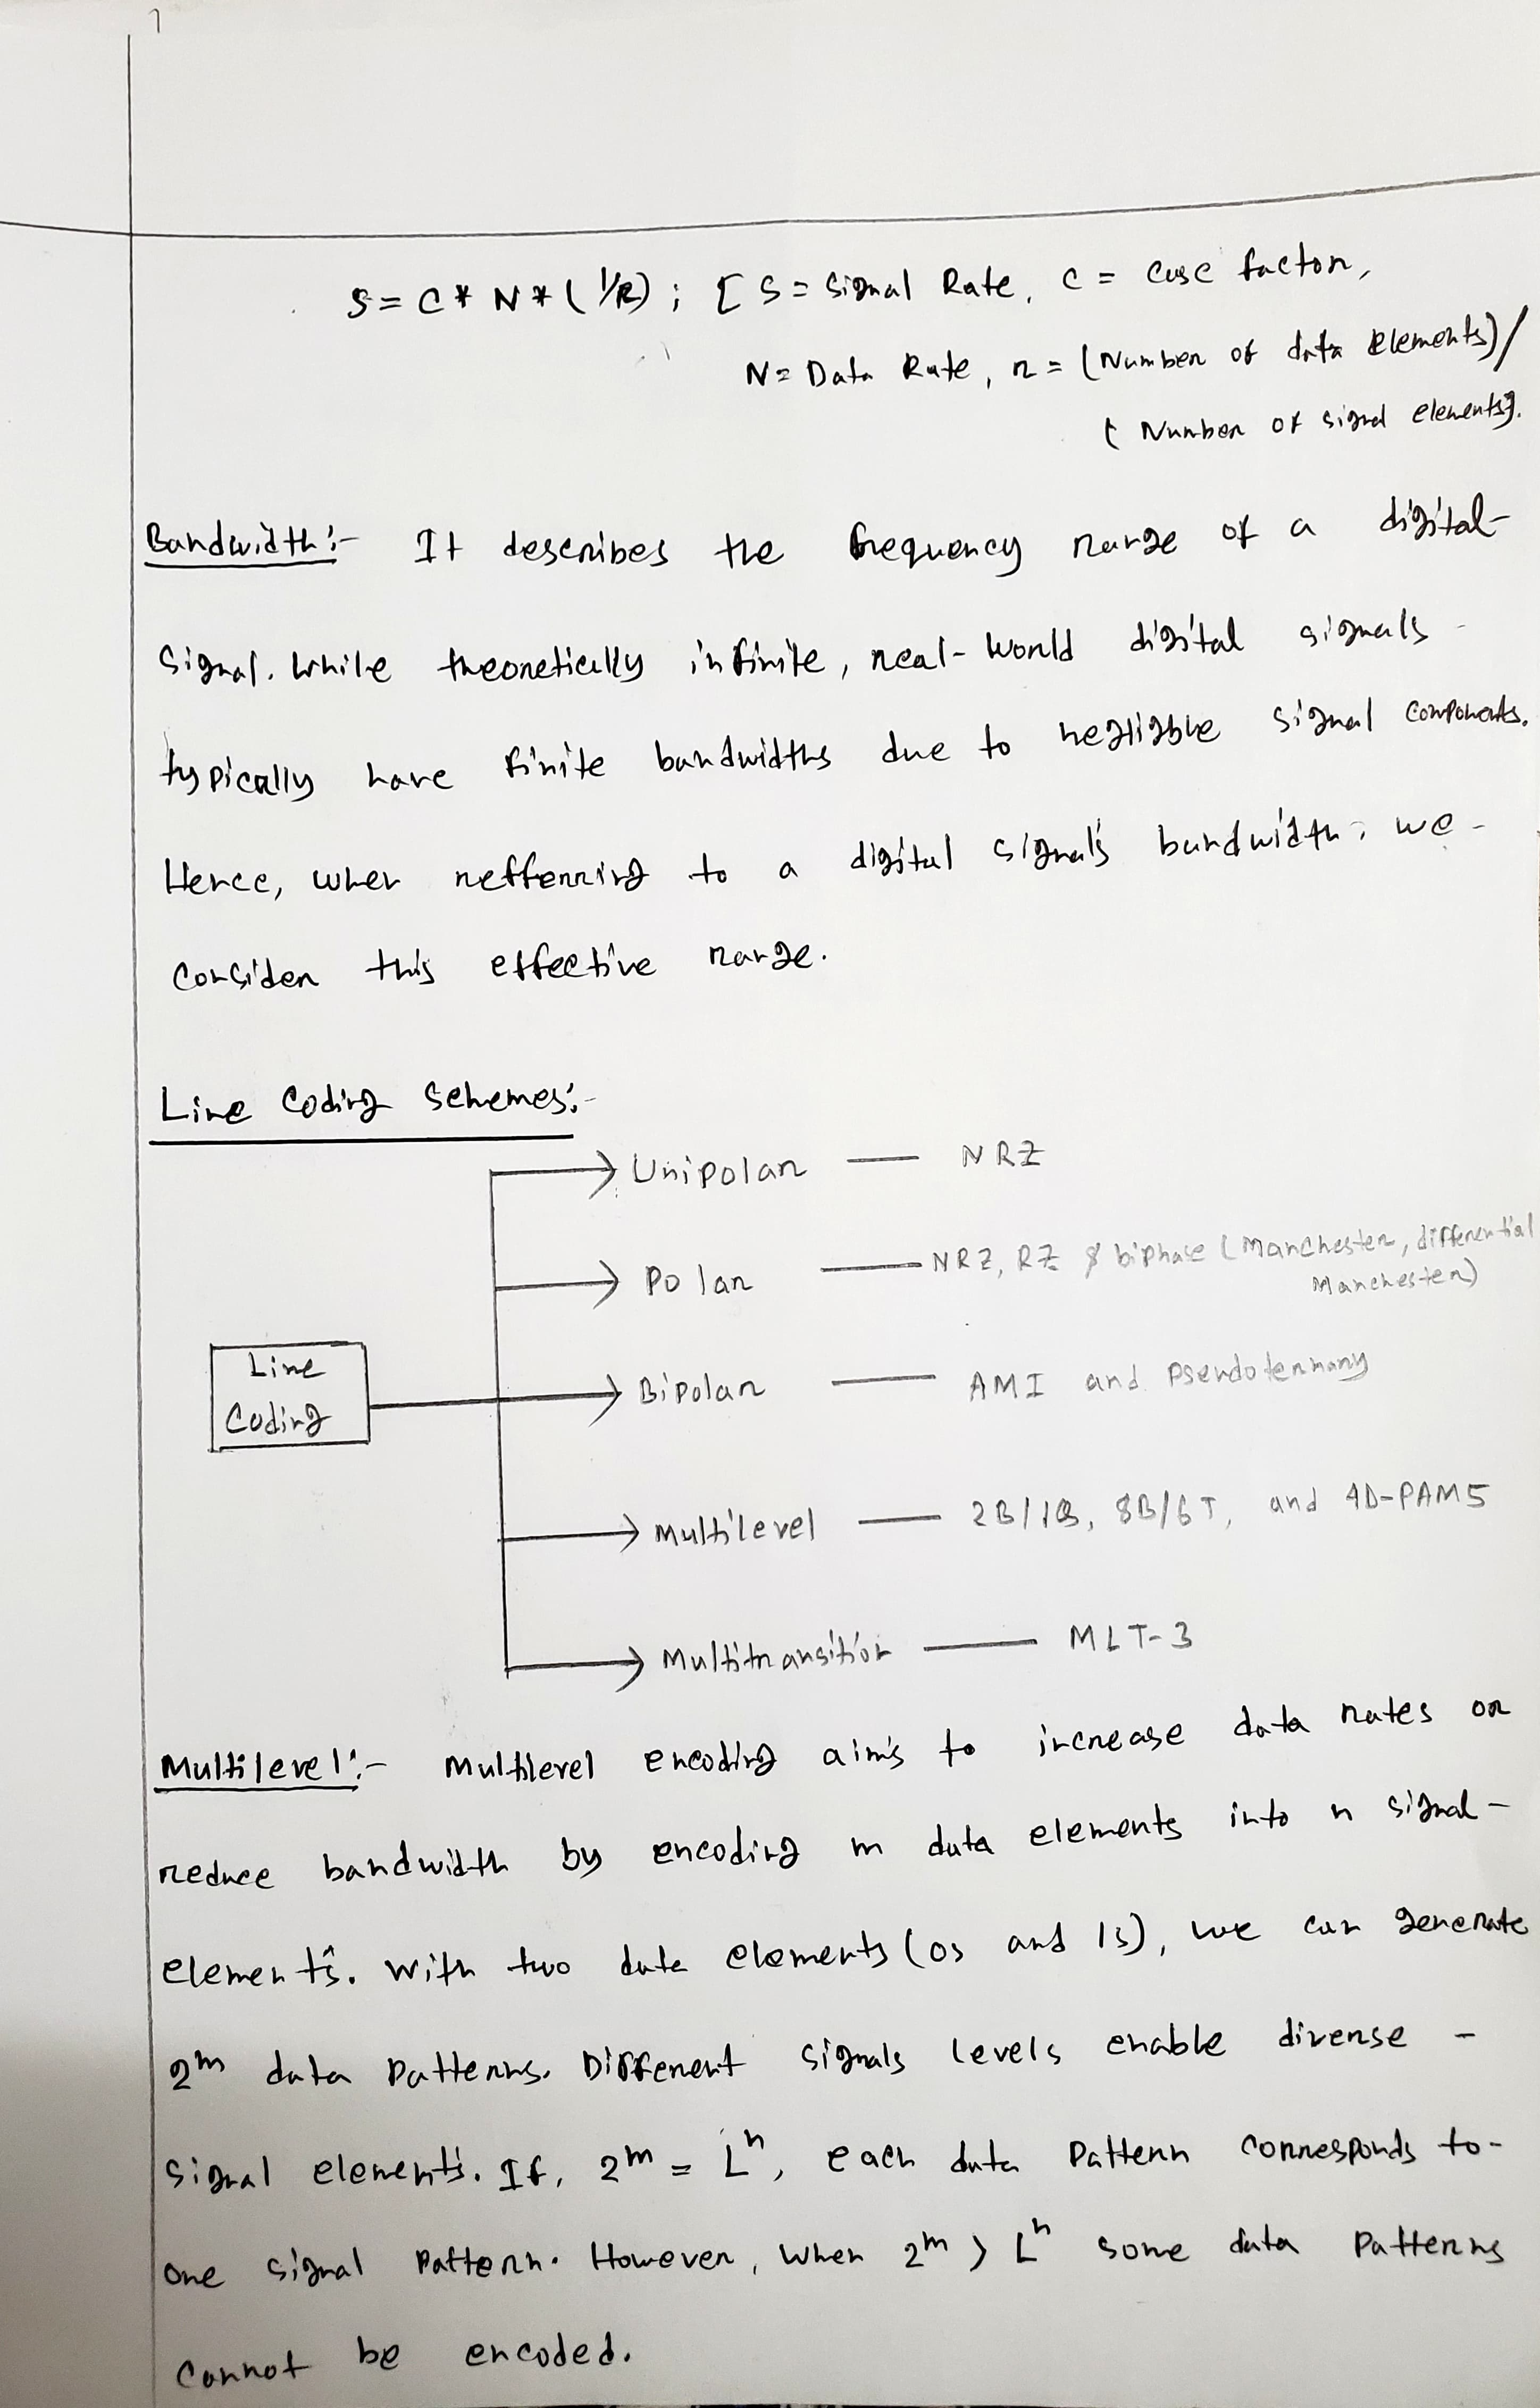 S = C * N * (1/R) ; [ S = Signal Rate, C = Case factor,
N = Data Rate, r = (Number of data elements) /
(Number of signal elements)].
Bandwidth:- It describes the frequency range of a digital-
signal. While theoretically infinite, real-world digital signals -
typically have finite bandwidths due to negligible signal components.
Hence, when refferring to a digital signal's bandwidth, we -
consider this effective range.
Line Coding Schemes:-
Unipolar — NRZ
Polar — NRZ, RZ & biphase (Manchester, differential
Manchester)
Line
Coding
Bipolar — AMI and Pseudoternary
Multilevel — 2B/1Q, 8B/6T, and 4D-PAM5
Multitransition — MLT-3
Multilevel:- Multilevel encoding aims to increase data rates or
reduce bandwidth by encoding m data elements into n signal-
elements. With two data elements (0s and 1s), we can generate
2^m data patterns. Different signals levels enable diverse -
signal elements. If, 2^m = L^n, each data pattern corresponds to-
one signal pattern. However, when 2^m > L^n some data patterns
cannot be encoded.